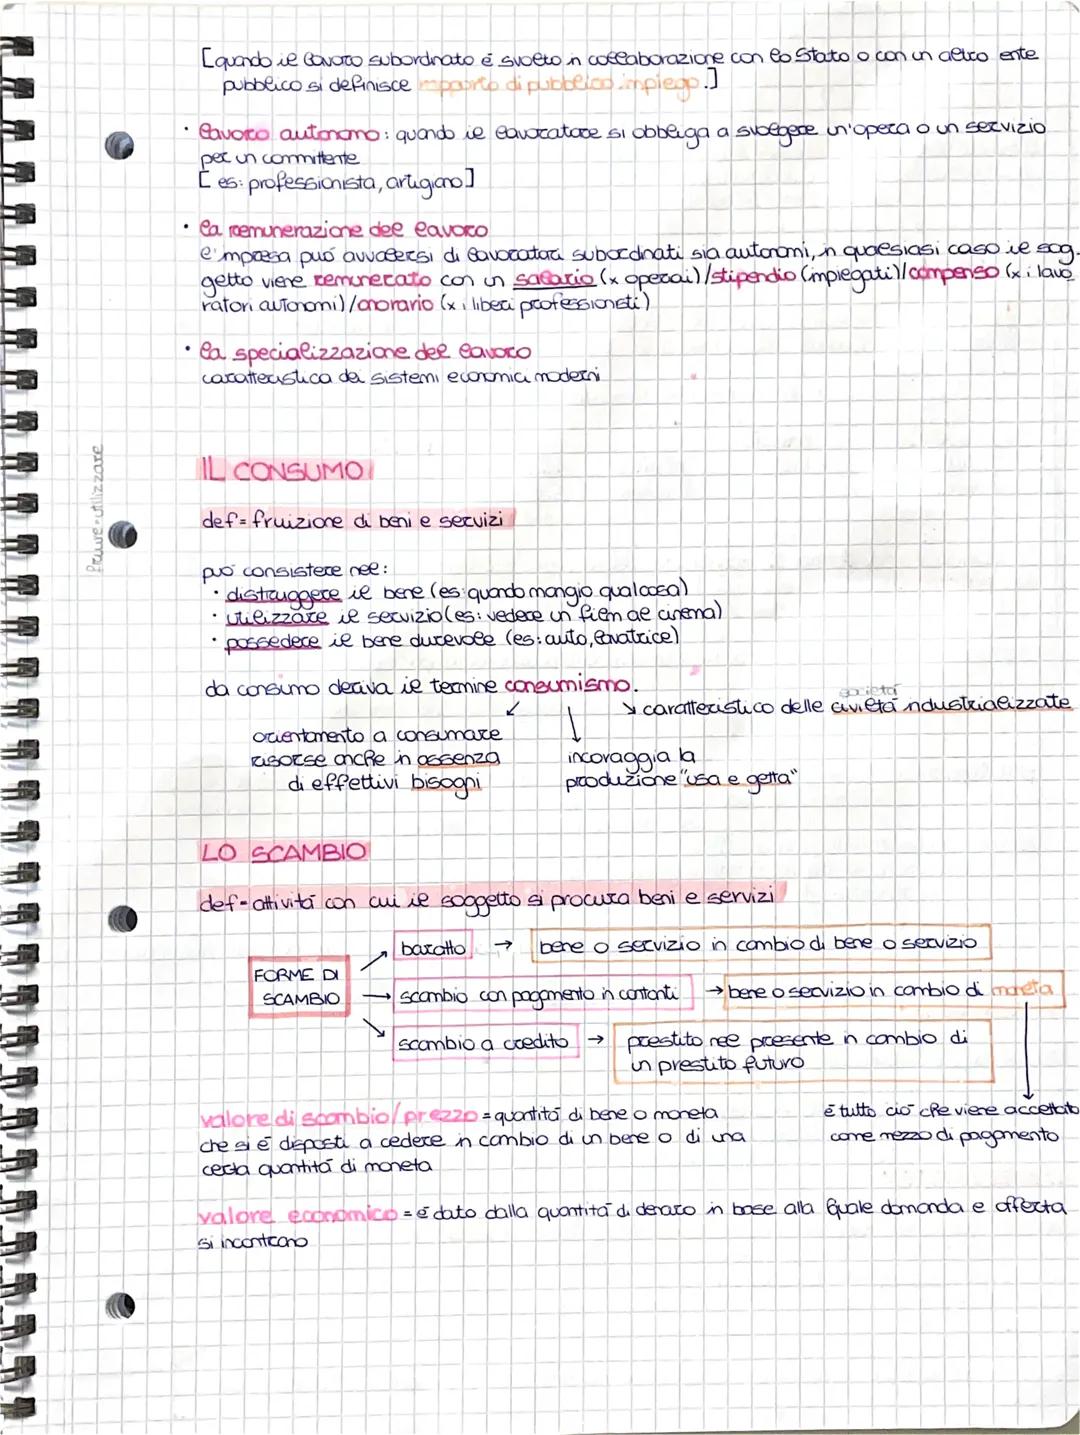 [quando il lavoro subordinato é svolto in collaborazione con lo Stato o con un altro ente
pubblico si definisce rapporto di pubblico impiego.]
· lavoro autonomo: quando il lavoratore si obbliga a svolgere un'opera o un servizio
per un committente
[es: professionista, artigiano]
· la remunerazione del lavoro
l'impresa puó avvalersi di lavoratori subordinati sia autonomi, in qualsiasi caso il sog-
getto viene remunerato con un salario (x operai)/stipendio (impiegati)/compenso (x i lavo
ratori autonomi)/onorario (x i liberi professionisti)
· la specializzazione del lavoro
caratteristica dei sistemi economici moderni
IL CONSUMO
Fruire=utilizzare
def= fruizione di beni e servizi
puó consistere nel:
· distruggere il bene (es: quando mangio qualcosa)
· utilizzare il servizio (es: vedere un film al cinema)
· possedere il bene durevole (es: auto, lavatrice)
da consumo deriva il termine consumismo.
societá
↘ caratteristico delle civiltá industrializzate
orientamento a consumare
risorse anche in assenza
di effettivi bisogni
incoraggia la
produzione "usa e getta"
LO SCAMBIO
def= attivitá con cui il soggetto si procura beni e servizi
FORME DI
SCAMBIO
baratto → bene o servizio in cambio di bene o servizio
scambio con pagamento in contanti → bene o servizio in cambio di moneta
scambio a credito → prestito nel presente in cambio di
un prestito futuro
é tutto ció che viene accettato
come mezzo di pagamento
valore di scambio/prezzo = quantitá di bene o moneta
che si é disposti a cedere in cambio di un bene o di una
certa quantitá di moneta
valore economico = é dato dalla quantitá di denaro in base alla quale domanda e offerta
si incontrano